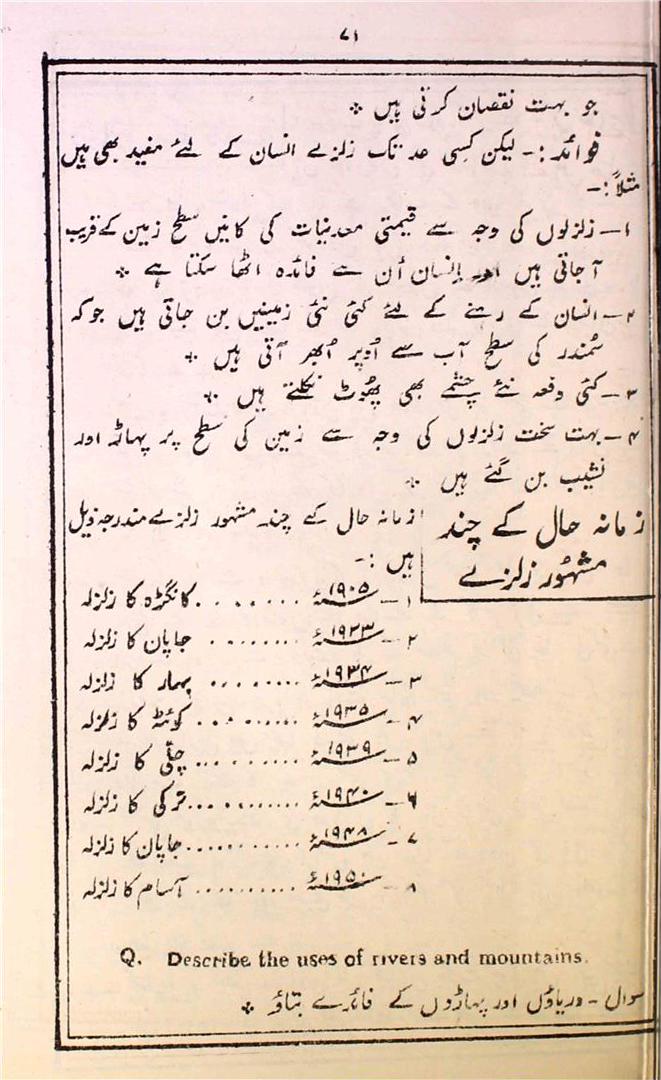 ۷۱
جو بہت نقصان کرتی ہیں ٭
فوائد :۔ لیکن کسی حد تک زلزلے انسان کے لئے مفید بھی ہیں
مثلاً :۔
۱۔ زلزلوں کی وجہ سے قیمتی معدنیات کی کانیں سطح زمین کے قریب
آ جاتی ہیں اور انسان اُن سے فائدہ اٹھا سکتا ہے ٭
۲۔ انسان کے رہنے کے لئے کئی نئی زمینیں بن جاتی ہیں جو کہ
سُمندر کی سطح آب سے اُوپر اُبھر آتی ہیں ٭
۳۔ کئی دفعہ نئے چشمے بھی پھُوٹ نکلتے ہیں ٭
۴۔ بہت سخت زلزلوں کی وجہ سے زمین کی سطح پر پہاڑ اور
نشیب بن گئے ہیں ٭
زمانہ حال کے چند
مشہُور زلزلے
زمانہ حال کے چند مشہور زلزلے مندرجہ ذیل
ہیں :۔
۱۔ ۱۹۰۵ء ........ کانگڑہ کا زلزلہ
۲۔ ۱۹۲۳ء ........ جاپان کا زلزلہ
۳۔ ۱۹۳۴ء ......... بہار کا زلزلہ
۴۔ ۱۹۳۵ء ......... کوئٹہ کا زلزلہ
۵۔ ۱۹۳۹ء ......... چلّی کا زلزلہ
۶۔ ۱۹۴۰ء .......... ترکی کا زلزلہ
۷۔ ۱۹۴۸ء .......... جاپان کا زلزلہ
۸۔ ۱۹۵۰ء .......... آسام کا زلزلہ
Q. Describe the uses of rivers and mountains.
سوال ۔ دریاؤں اور پہاڑوں کے فائدے بتاؤ ٭